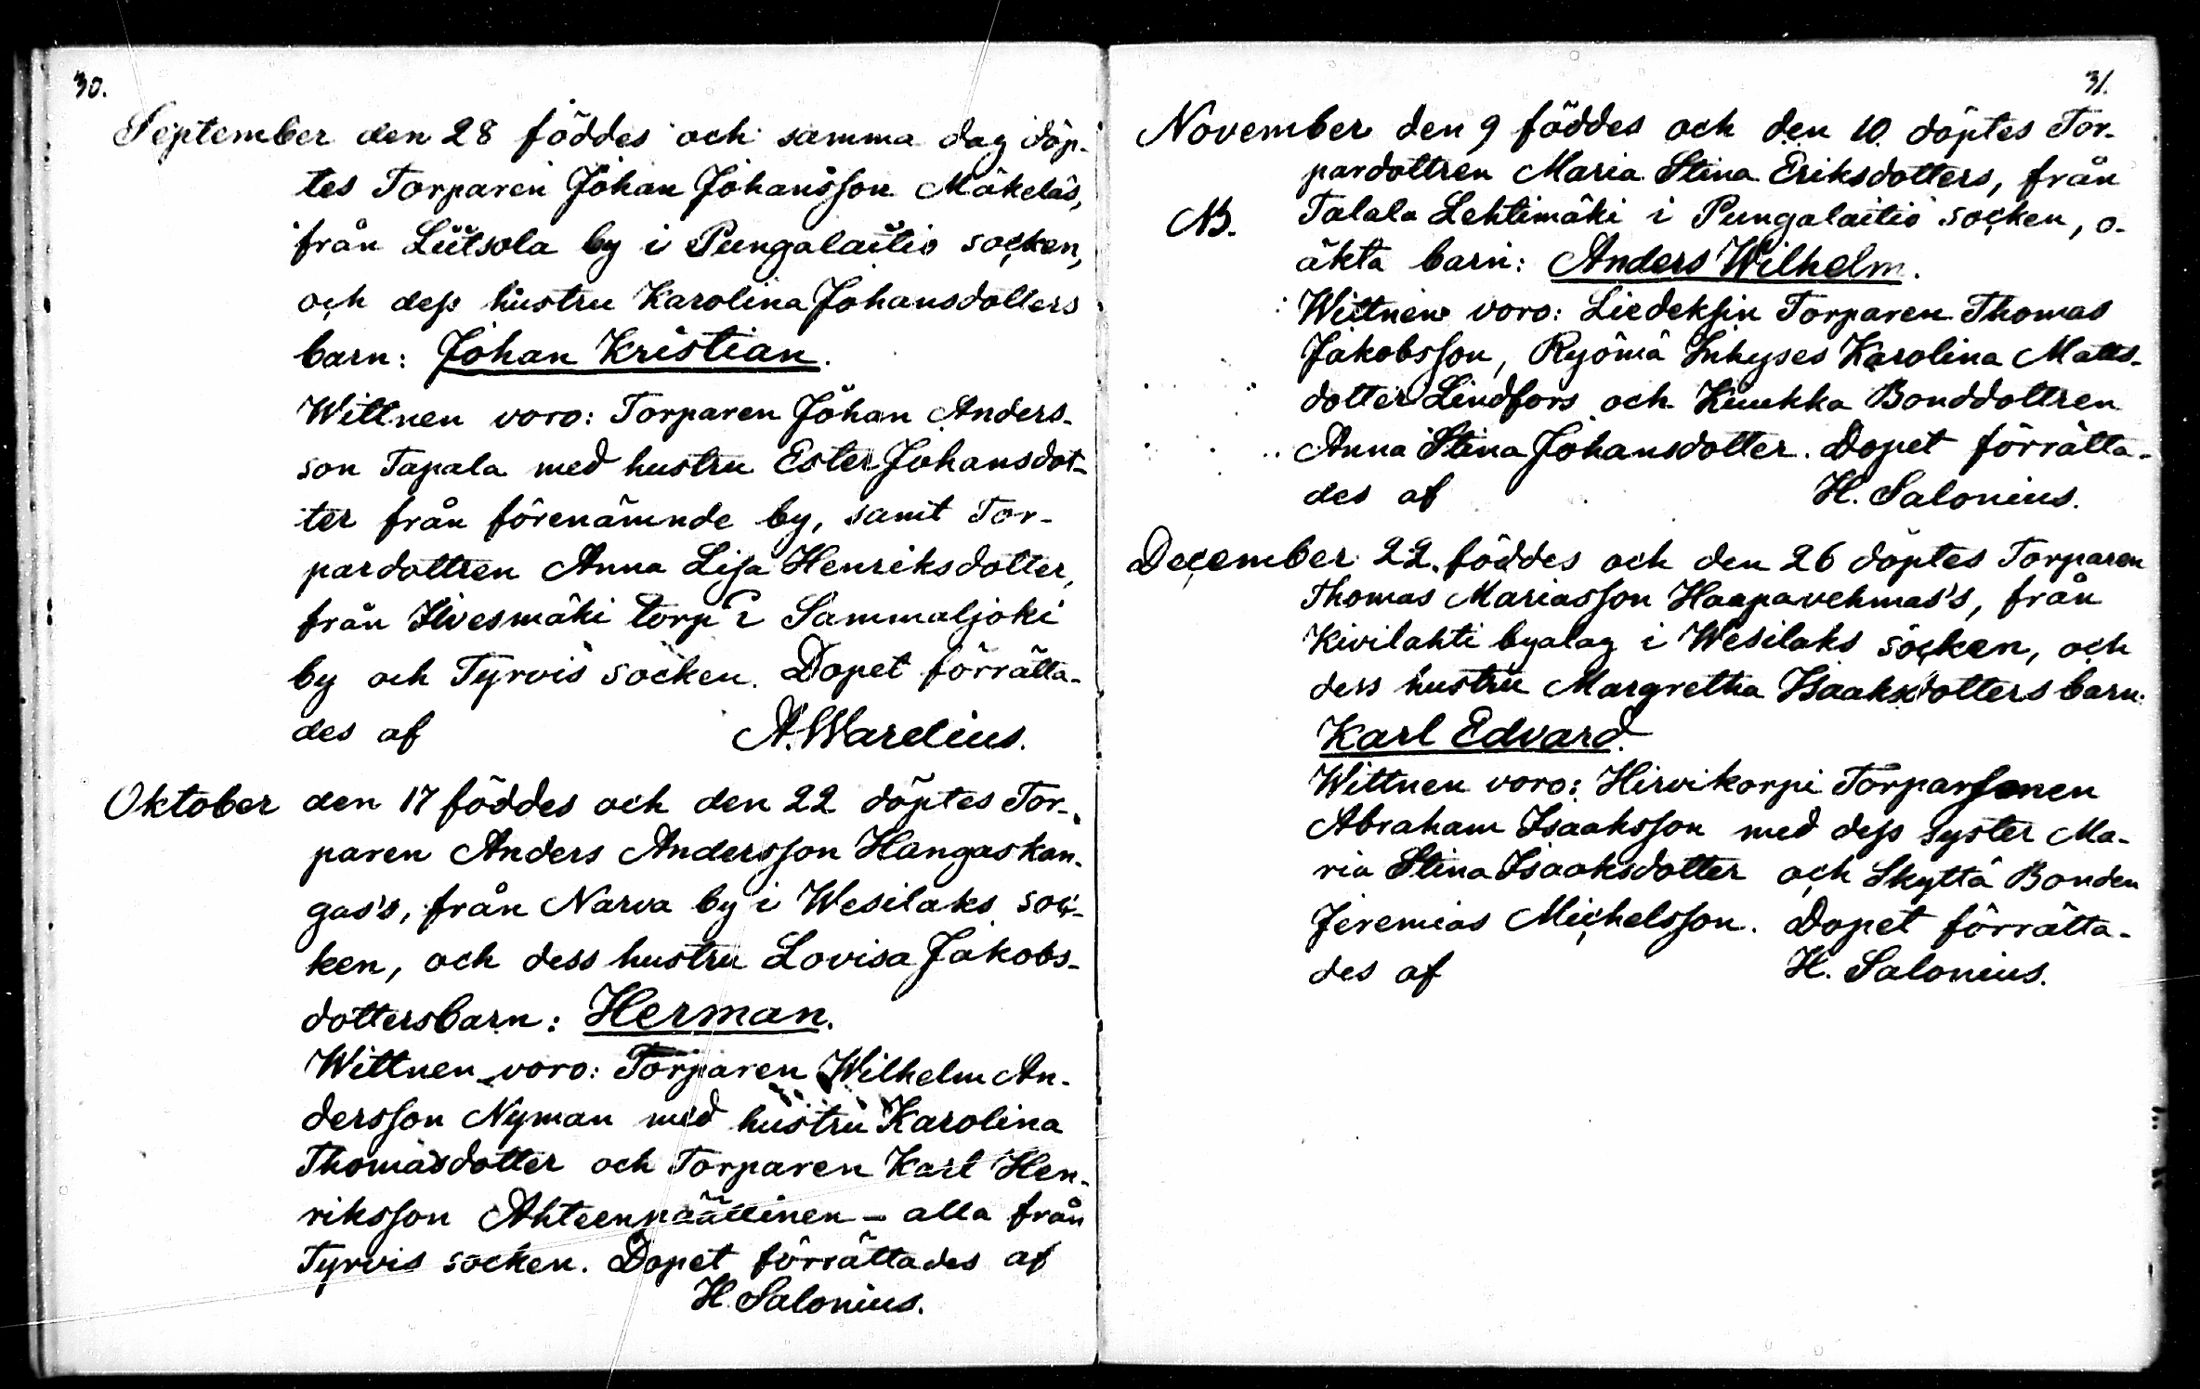 30.
September den 28 föddes och samma dag döp-
tes Torparen Johan Johansson Mäkeläs,
från Liitsola by i Pungalaitio socken,
och dess hustru Karolina Johansdotters
barn: Johan Kristian.
Wittnen voro: Torparen Johan Anders-
son Tapala med hustru Ester Johansdot-
ter från förenämnde by, samt Tor-
pardottren Anna Lisa Henriksdotter,
från Ilvesmäki torp i Sammaljoki
by och Tyrvis socken. Dopet förrätta-
des af A. Warelius.
Oktober den 17 föddes och den 22 döptes Tor-
paren Anders Andersson Hangaskan-
gas's, från Narva by i Wesilaks soc-
ken, och dess hustru Lovisa Jakobs-
dottersbarn: Herman.
Wittnen voro: Torparen Wilhelm An-
dersson Nyman med hustru Karolina
Thomasdotter och Torparen Karl Hen-
riksson Ahteenpäällinen - alla från
Tyrvis socken. Dopet förrättades af
H. Salonius.
31.
November den 9 föddes och den 10 döptes Tor-
pardottren Maria Stina Eriksdotters, från
NB. Talala Lehtimäki i Pungalaitio socken, o-
äkta barn: Anders Wilhelm.
Wittnen voro: Liedeksin Torparen Thomas
Jakobsson, Ryömä Inhyses Karolina Matts-
dotter Lindfors och Kuukka Bonddottren
Anna Stina Johansdotter. Dopet förrätta-
des af H. Salonius.
December 22. föddes och den 26 döptes Torparen
Thomas Mariasson Haapavehmas's, från
Kivilahti byalag i Wesilaks socken, och
dess hustru Margretha Isaaksdotters barn:
Karl Edvard.
Wittnen voro: Hirvikorpi Torparsonen
Abraham Isaaksson med dess syster Ma-
ria Stina Isaaksdotter och Skyttä Bonden
Jeremias Michelsson. Dopet förrätta-
des af H. Salonius.